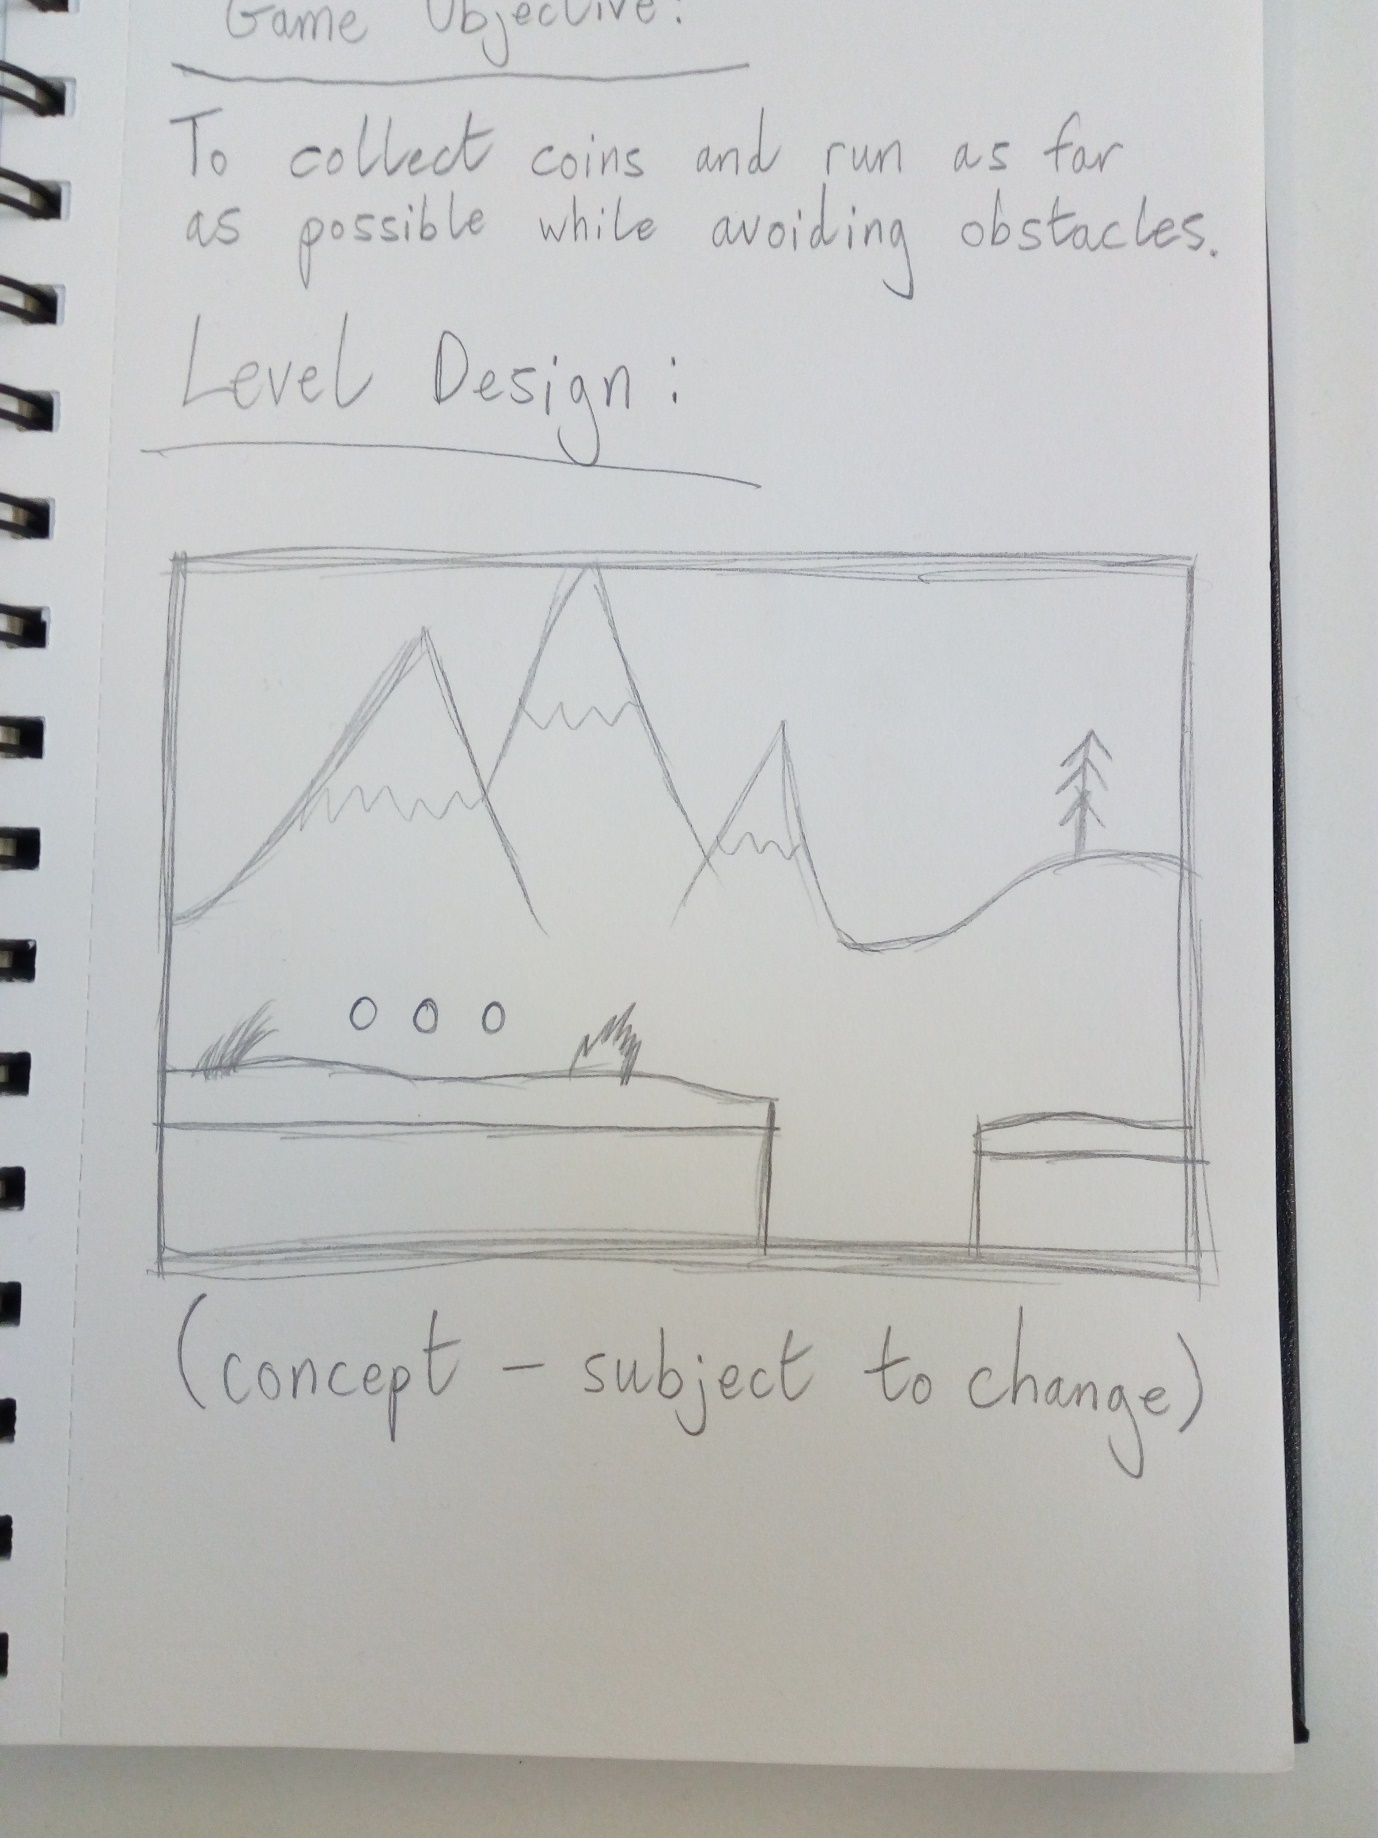 Game Objective:
To collect coins and run as far
as possible while avoiding obstacles.
Level Design:
(concept - subject to change)